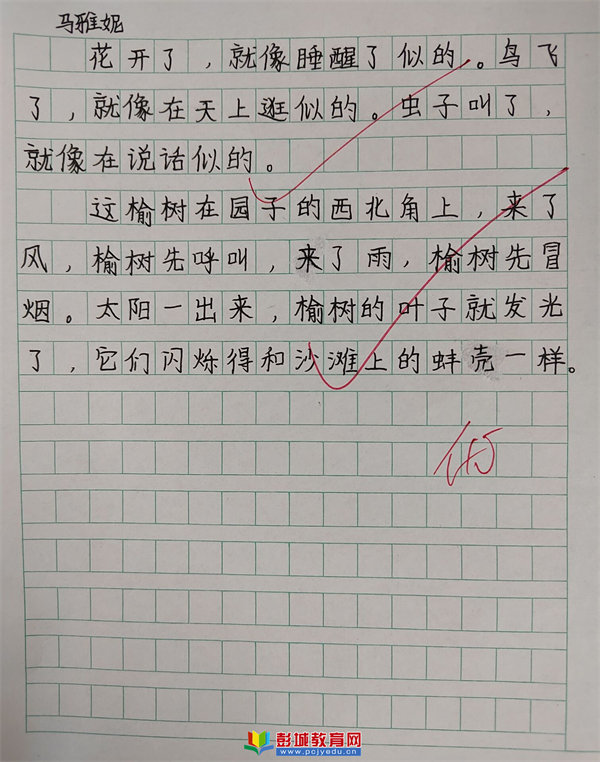 马雅妮
花开了，就像睡醒了似的。鸟飞
了，就像在天上逛似的。虫子叫了，
就像在说话似的。
这榆树在园子的西北角上，来了
风，榆树先呼叫，来了雨，榆树先冒
烟。太阳一出来，榆树的叶子就发光
了，它们闪烁得和沙滩上的蚌壳一样。
彭城教育网
www.pcjyedu.cn